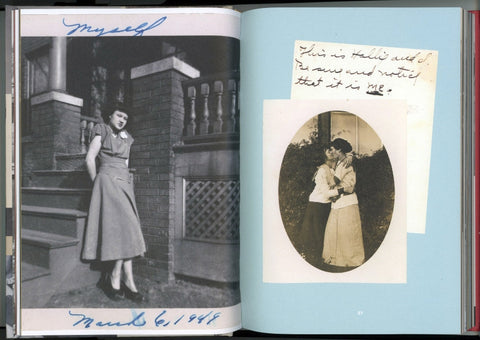 Myself
March 6, 1949
This is Hallie and I.
Be sure and notice
that it is me.